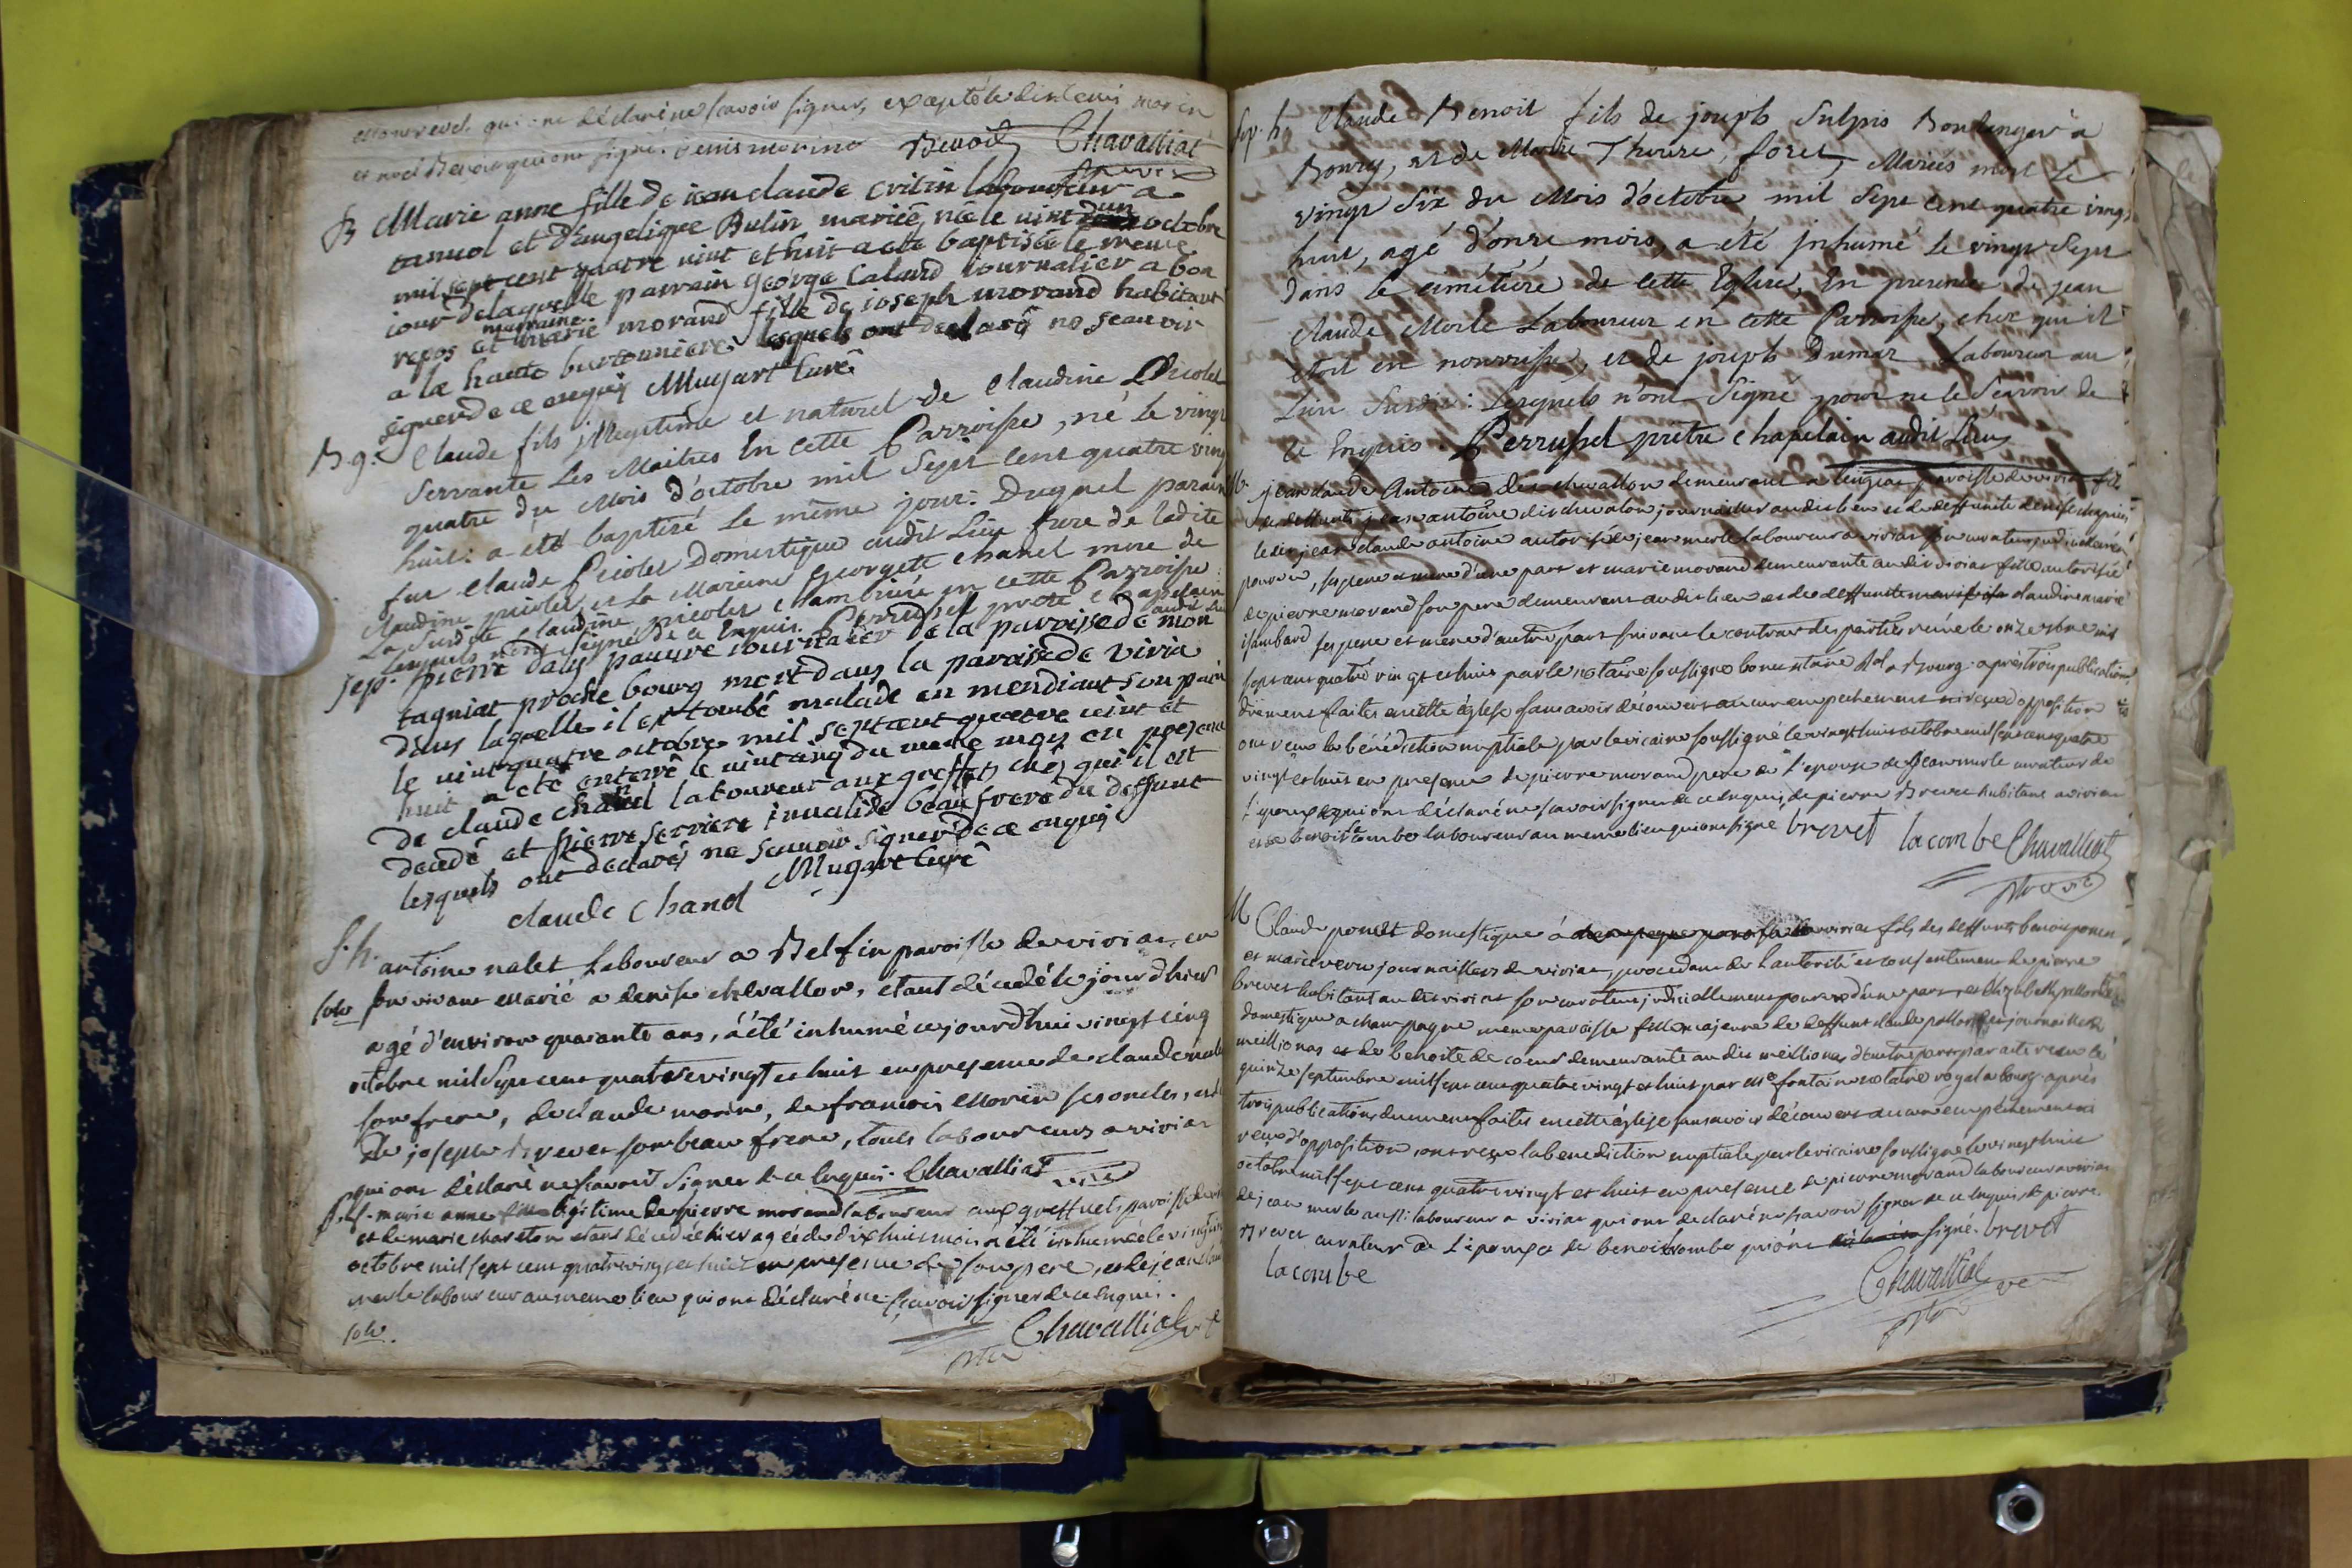 qui ont déclaré ne scavoir signer, excepté le dit denis morin
et qui ont signé. denis morino Benoit Chavalliat
vire
B Marie anne fille de jean claude cvitin laboureur a
et d'angelique Bulin mariés, née le vint un octobre
mil sept cent quatre vint et huit a ette baptisée le meme
jour de laquelle parrain george Caland journalier a bon
repos et marraine marie morand fille de joseph morand habitant
a la haute bertonniere lesquels ont declarés ne scavoir
signer de ce enquis Mugart Curé
B. g. Claude fils illegitime et naturel de Claudine Picolet
Servante Les Maitres En cette Parroisse, né le vingt
quatre du Mois d'octobre mil Sept cent quatre ving
huit: a été baptisé Le même jour: Duquel parain
fut Claude Picolet Domestique audit Lieu frere de ladite
Claudine picolet, et La Maraine Georgette Chanel mere de
La Surdite Claudine picolet Chambriere en cette Parroisse
Lesquels n'ont signé de ce Enquis. Perrussel pretre Chapelain
audit Lieu
Sep. pierre dang pauvre journalier de la paroisse de mon
tagniat proche bourg mort dans la paroisse de viria
dans laquelle il est tombé malade en mendiant son pain
le vint quatre octobre mil sept cent quatre vint et
huit a été enterré le vint cinq du meme mois en presence
de claude chanel laboureur aux greffets chés qui il est
decedé et pierre serriere invalide beau frere du deffunt
lesquels ont declarés ne scavoir signer de ce enquis
Mugart Curé
claude Chanel
S. h. antoine nalet Laboureur a Belfin paroisse de viriat, en
solv son vivant marié a denise chevallon, étant décedé le jour d'hier
agé d'environ quarante ans, à été inhumé cejourd'hui vingt cinq
octobre mil sept cent quatrevingt et huit en presence de claude nalet
son frere, de claude morin, de francois Morin ses oncles, et
de joseph Brevet son beau frere, touts laboureurs a viriat
qui ont déclaré ne scavoir signer de ce Enquis. Chavalliat
vire
S. f. marie anne fille légitime de pierre morand laboureur aux greffets paroisse de
et de marie chareton etant décedée hier agée de dix huit mois a été inhumée le vingt
octobre mil sept cent quatre vingt et huit en presence de son pere, et de jean
merle laboureur au meme lieu qui ont déclaré ne scavoir signer de ce enquis.
solv. Chavalliat
Sep. h. Claude Benoit fils de joseph Sulpis Boulanger à
Bourg, et de Marie Therese, foret, Mariés mort Le
vingt Six du Mois d'octobre mil Sept cent quatre vingt
huit, agé d'onze mois, a été inhumé Le vingt Sept
dans Le cimétiére de cette Eglise, En presence de jean
claude Merle Laboureur en cette Parroisse, chez qui il
étoit en nourrisse, et de joseph Dumar Laboureur au
Lieu Surdit: Lesquels n'ont Signé pour ne le Scavoir de
ce Enquis. Perrussel prêtre Chapelain audit Lieu
M. jean claude Antoine dit chevallon demeurant a paroisse de viria fils
de deffunts jean antoine dit chevalon, journailler audit lieu et de deffunte denise
ledit jean claude antoine autorisé de jean merle laboureur a viriat son curateur judiciairement
pourvu, ses pere et mere d'une part et marie morand demeurante audit viriat fille autorisée
de pierre morand son pere demeurant audit lieu et de deffunte claudine marie
isambard ses pere et mere d'autre part suivant le contrat des parties reçu le onze mil
sept cent quatre vingt et huit par le notaire soussigné a Bourg. après trois publications
duement faites en cette église sans avoir découvert aucun empechement ni reçu d'opposition
ont reçu la bénédiction nuptiale par le vicaire soussigné le vingt huit octobre mil sept cent quatre
vingt et huit en presence de pierre morand pere de l'epouse de jean merle curateur de
l'epoux qui ont déclaré ne scavoir signer de ce enquis, de pierre Brevet habitant a viriat
et de benoit lacombe laboureur au meme lieu qui ont signé brevet lacombe Chavalliat
vire
M Claude poncet domestique à viriat fils des deffunts benoit poncet
et marie journailliers de viriat, procedant de l'autorité et consentement de pierre
brevet habitant audit viriat son curateur judiciellement pourvu d'une part, et Elizabeth
domestique a champagne meme paroisse fille majeure de deffunt claude journallier
meillionas et de benoite de coeur demeurante au dit meillionas d'autre part par acte reçu le
quinze septembre mil sept cent quatre vingt et huit par Me fontaine notaire royal a bourg. après
trois publications duement faites en cette église sans avoir découvert aucun empêchement ni
reçu d'opposition, ont reçu la benediction nuptiale par le vicaire soussigné le vingt huit
octobre mil sept cent quatre vingt et huit en presence de pierre morand laboureur a viriat
de jean merle aussi laboureur a viriat qui ont declaré ne scavoir signer de ce enquis, de pierre
Brevet curateur de l'epoux et de benoit lacombe qui ont signé. brevet
lacombe Chavalliat
vre